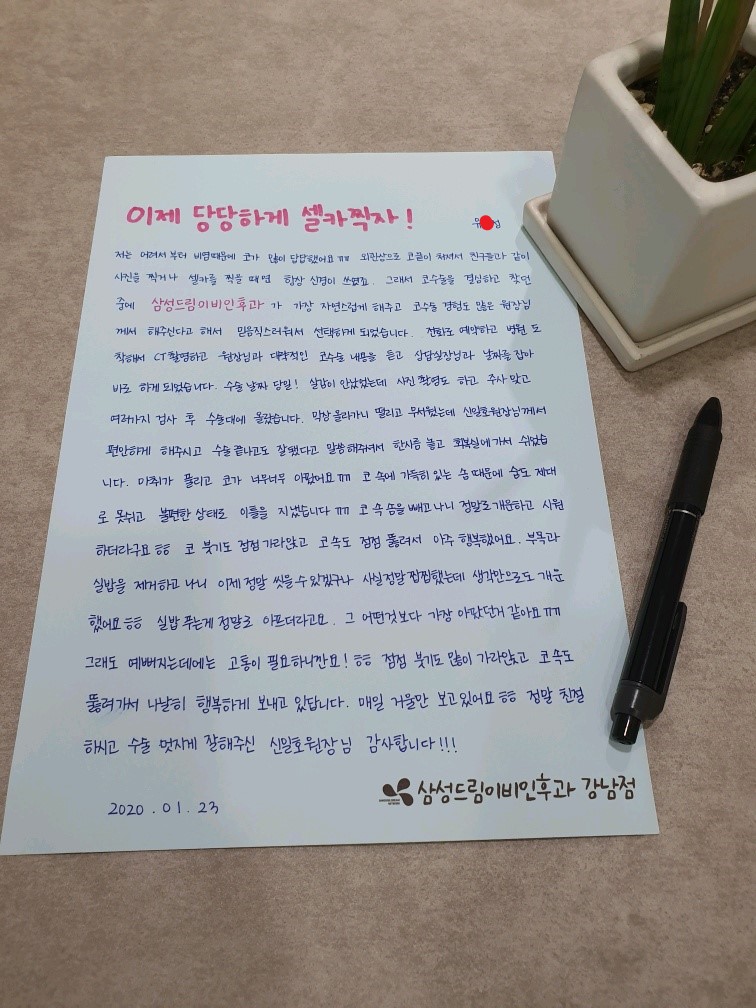 이제 당당하게 셀카찍자!
유 성
저는 어려서부터 비염때문에 코가 많이 답답했어요ㅠㅠ 외관상으로 코끝이 쳐져서 친구들과 같이
사진을 찍거나 셀카를 찍을 때면 항상 신경이 쓰였죠. 그래서 코수술을 결심하고 찾던
중에 삼성드림이비인후과가 가장 자연스럽게 해주고 코수술 경험도 많은 원장님
께서 해주신다고 해서 믿음직스러워서 선택하게 되었습니다. 전화로 예약하고 병원 도
착해서 CT촬영하고 원장님과 대략적인 코수술 내용을 듣고 상담실장님과 날짜를 잡아
바로 하게 되었습니다. 수술 날짜 당일! 실감이 안났었는데 사진 촬영도 하고 주사 맞고
여러가지 검사 후 수술대에 올랐습니다. 막상 올라가니 떨리고 무서웠는데 신일호원장님께서
편안하게 해주시고 수술 끝나고도 잘됐다고 말씀해주셔서 한시름 놓고 회복실에 가서 쉬었습
니다. 마취가 풀리고 코가 너무너무 아팠어요ㅠㅠ 코 속에 가득히 있는 솜 때문에 숨도 제대
로 못쉬고 불편한 상태로 이틀을 지냈습니다ㅠㅠ 코 속 솜을 빼고 나니 정말로 개운하고 시원
하더라구요ㅎㅎ 코 붓기도 점점 가라앉고 코 속도 점점 뚫려서 아주 행복했어요. 부목과
실밥을 제거하고 나니 이제 정말 씻을 수 있겠구나 사실 정말 찝찝했는데 생각만으로도 개운
했어요ㅎㅎ 실밥 푸는게 정말로 아프더라고요. 그 어떤것보다 가장 아팠던거 같아요ㅠㅠ
그래도 예뻐지는데에는 고통이 필요하니깐요! ㅎㅎ 점점 붓기도 많이 가라앉고 코 속도
뚫려가서 나날히 행복하게 보내고 있답니다. 매일 거울만 보고있어요ㅎㅎ 정말 친절
하시고 수술 멋지게 잘해주신 신일호원장님 감사합니다!!!
2020.01.23
삼성드림이비인후과 강남점